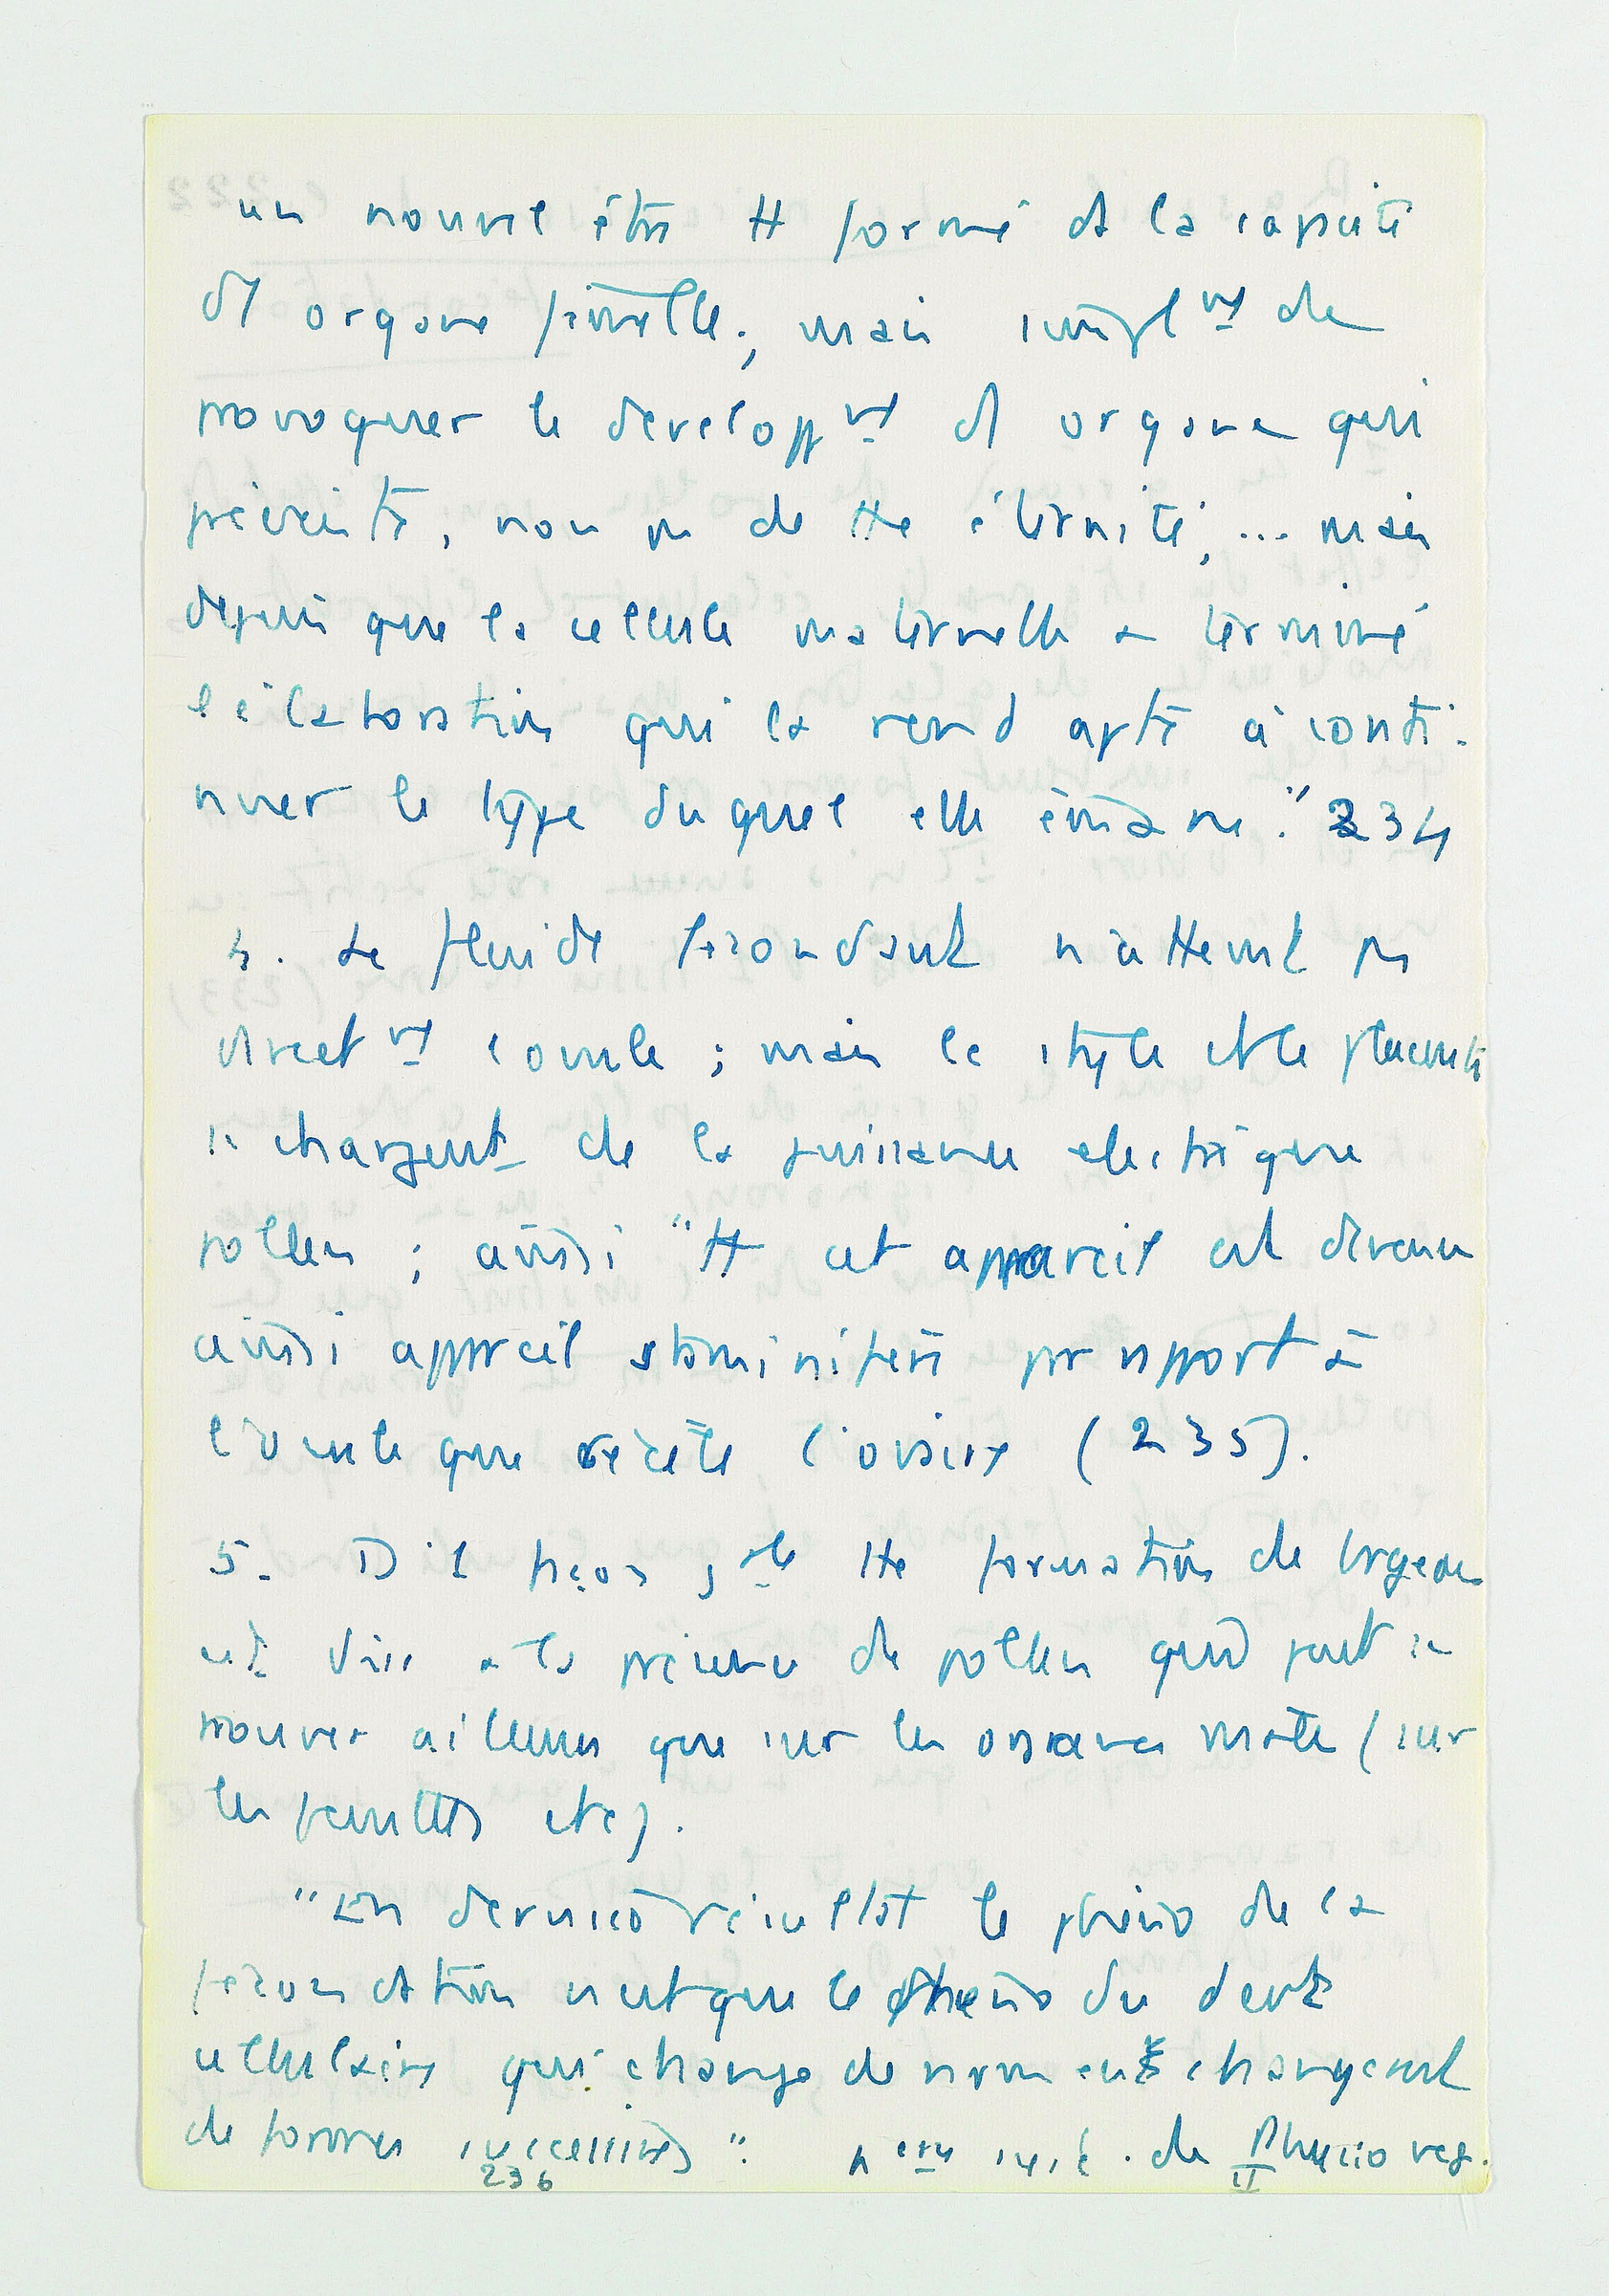 un nouvel être tt formé ds la capacité
d'1 organe femelle; mais simplmt de
provoquer le developpmt d'1 organe qui
préexiste, non pas de tte éternité, ... mais
depuis que la cellule maternelle a terminé
l'élaboration qui la rend apte à conti-
nuer le type duquel elle émane." 234
4. Le fluide fécondant n'atteint pas
directmt l'ovule ; mais le style et le placenta
se chargent de la puissance electrique
pollen ; ainsi "tt cet appareil est devenu
ainsi appareil staminifère par rapport à
l'ovule que recèle l'ovaire (235).
5. D'1 façon gale tte formation de bourgeon
est due à la présence de pollen qui peut se
trouver ailleurs que sur les organes mâles (sur
les feuilles etc).
"En dernier résultat le phéno de la
fécondation n'est que le phéno du devt
cellulaire qui change de nom en changeant
de formes successives". Nveau syst. de Physio veg.
236 II